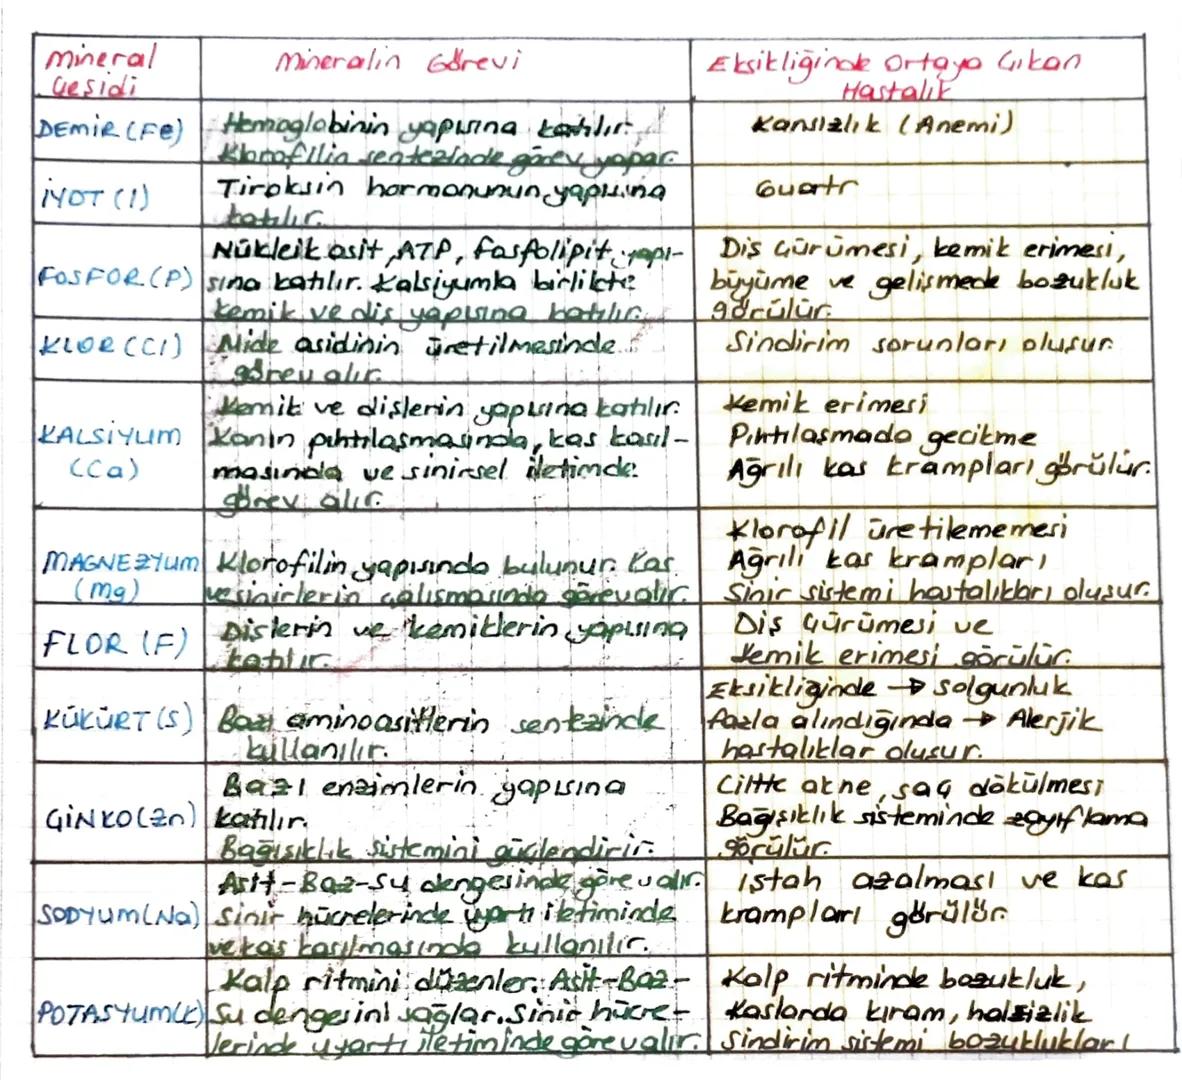 Mineral Çeşidi
Mineralin Görevi
Eksikliğinde Ortaya Çıkan
Hastalık
DEMİR (Fe)
Hemoglobinin yapısına katılır.
Klorofilin sentezinde görev yapar.
Kansızlık (Anemi)
İYOT (I)
Tiroksin hormonunun yapısına
katılır.
Guatr
FOSFOR (P)
Nükleik asit, ATP, fosfolipit yapı-
sına katılır. Kalsiyumla birlikte
kemik ve diş yapısına katılır.
Diş çürümesi, kemik erimesi,
büyüme ve gelişmede bozukluk
görülür.
KLOR (Cl)
Mide asidinin üretilmesinde
görev alır.
Sindirim sorunları oluşur.
KALSİYUM
(Ca)
Kemik ve dişlerin yapısına katılır.
Kanın pıhtılaşmasında, kas kasıl-
masında ve sinirsel iletimde
görev alır.
Kemik erimesi
Pıhtılaşmada gecikme
Ağrılı kas krampları görülür.
MAGNEZYUM
(Mg)
Klorofilin yapısında bulunur. Kas
ve sinirlerin çalışmasında görev alır.
Klorofil üretilememesi
Ağrılı kas krampları
Sinir sistemi hastalıkları oluşur.
FLOR (F)
Dişlerin ve kemiklerin yapısına
katılır.
Diş çürümesi ve
kemik erimesi görülür.
KÜKÜRT (S)
Bazı aminoasitlerin sentezinde
kullanılır.
Eksikliğinde → Solgunluk
fazla alındığında → Alerjik
hastalıklar oluşur.
ÇİNKO (Zn)
Bazı enzimlerin yapısına
katılır.
Bağışıklık sistemini güçlendirir.
Ciltte akne, saç dökülmesi
Bağışıklık sisteminde zayıflama
görülür.
SODYUM (Na)
Asit-Baz-Su dengesinde görev alır.
Sinir hücrelerinde uyartı iletiminde
ve kas kasılmasında kullanılır.
İştah azalması ve kas
krampları görülür.
POTASYUM (K)
Kalp ritmini düzenler. Asit-Baz-
Su dengesini sağlar. Sinir hücre-
lerinde uyartı iletiminde görev alır.
Kalp ritminde bozukluk,
Kaslarda kıram, halsizlik
Sindirim sistemi bozuklukları